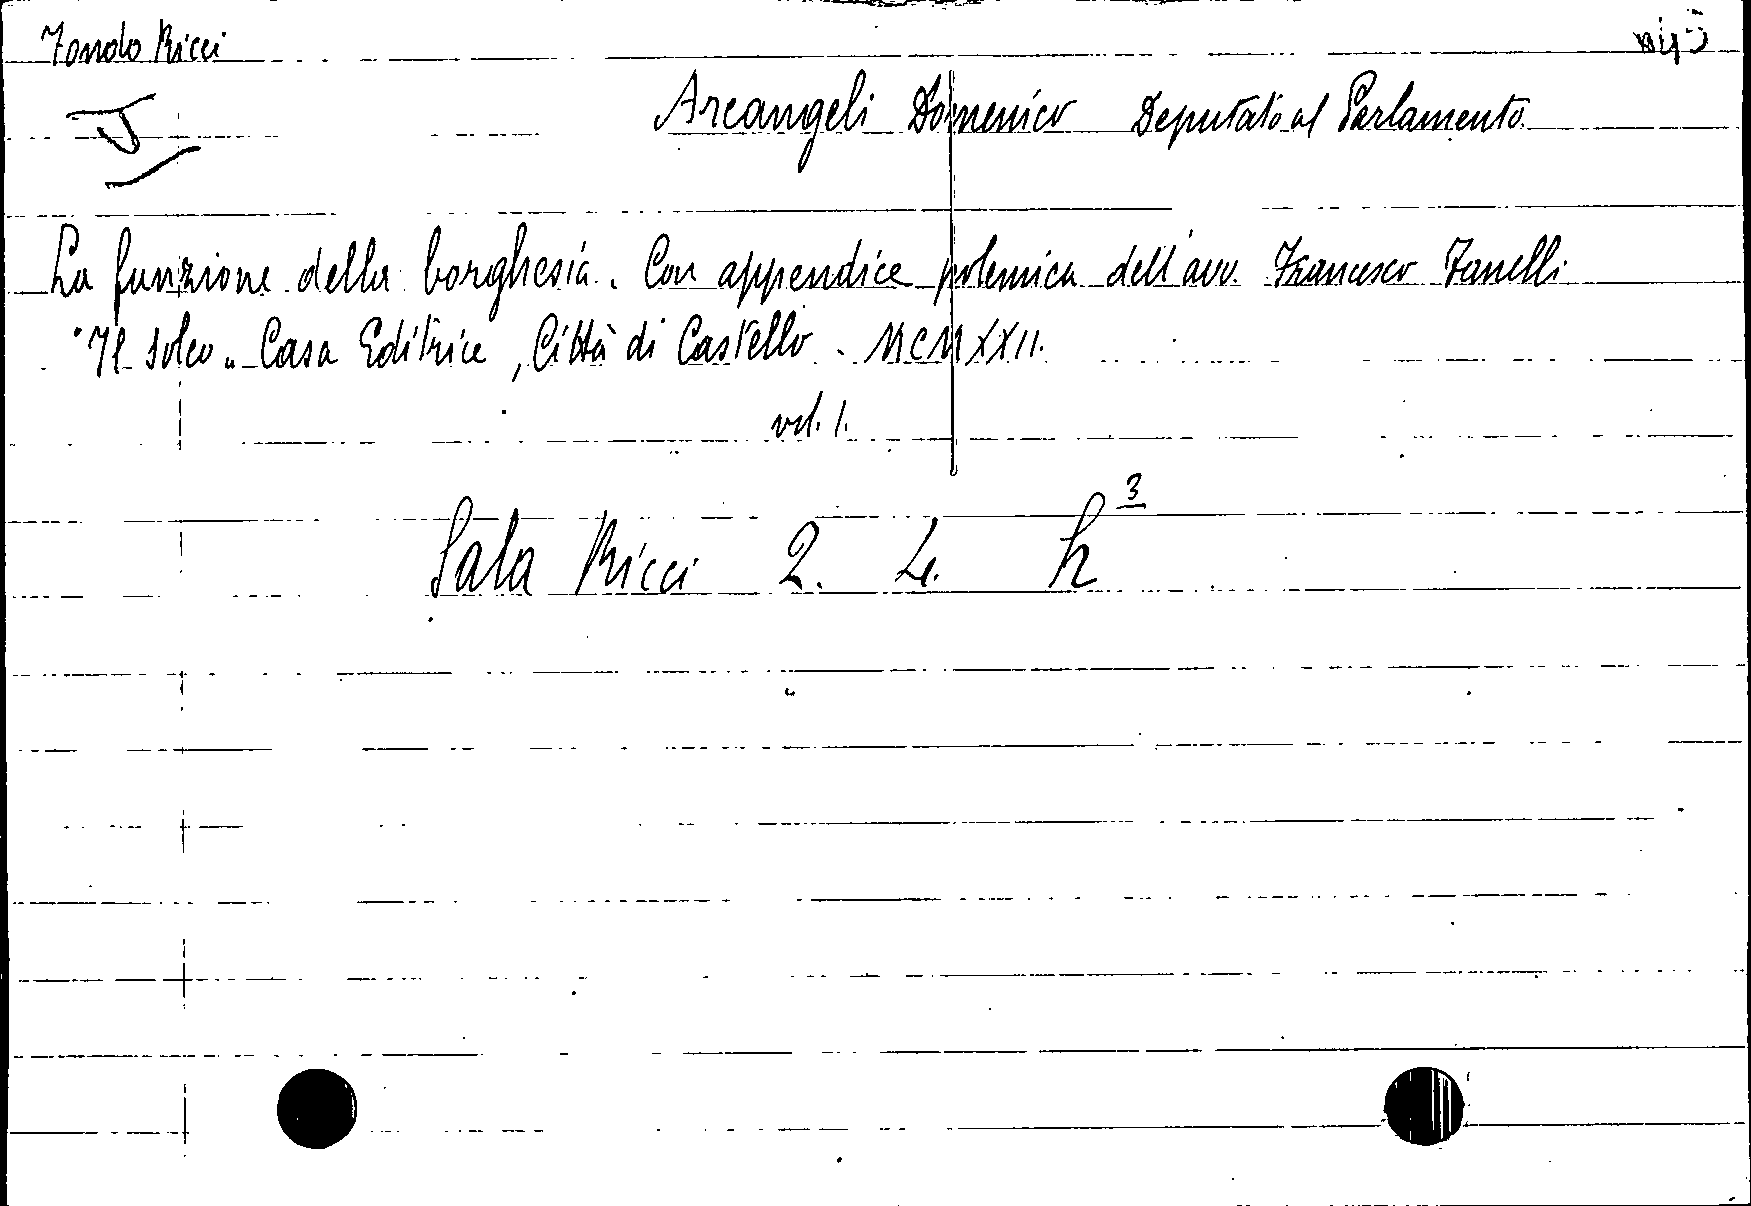 Fondo Ricci
Arcangeli Domenico Deputato al Parlamento
La funzione della borghesia. Con appendice polemica dell'avv. Francesco Fanelli
"Il Solco" Casa Editrice, Città di Castello. MCMXXII.
vol. 1.
Sala Ricci 2. 4. h 3